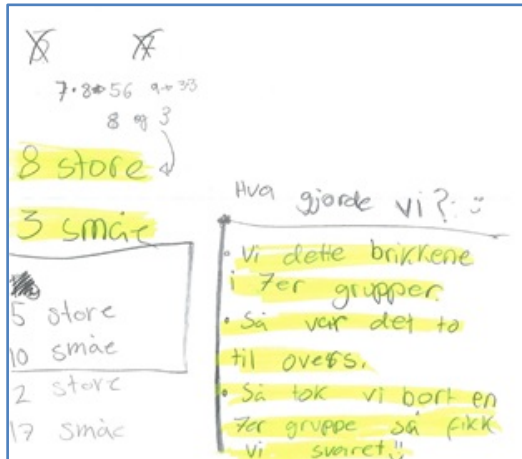 7·8=56
8 og 3
8 store
3 småe
5 store
10 småe
2 store
17 småe
Hva gjorde vi?
• Vi dette brikkene
i 7er grupper.
• Så var det to
til overs.
• Så tok vi bort en
7er gruppe så fikk
vi svaret